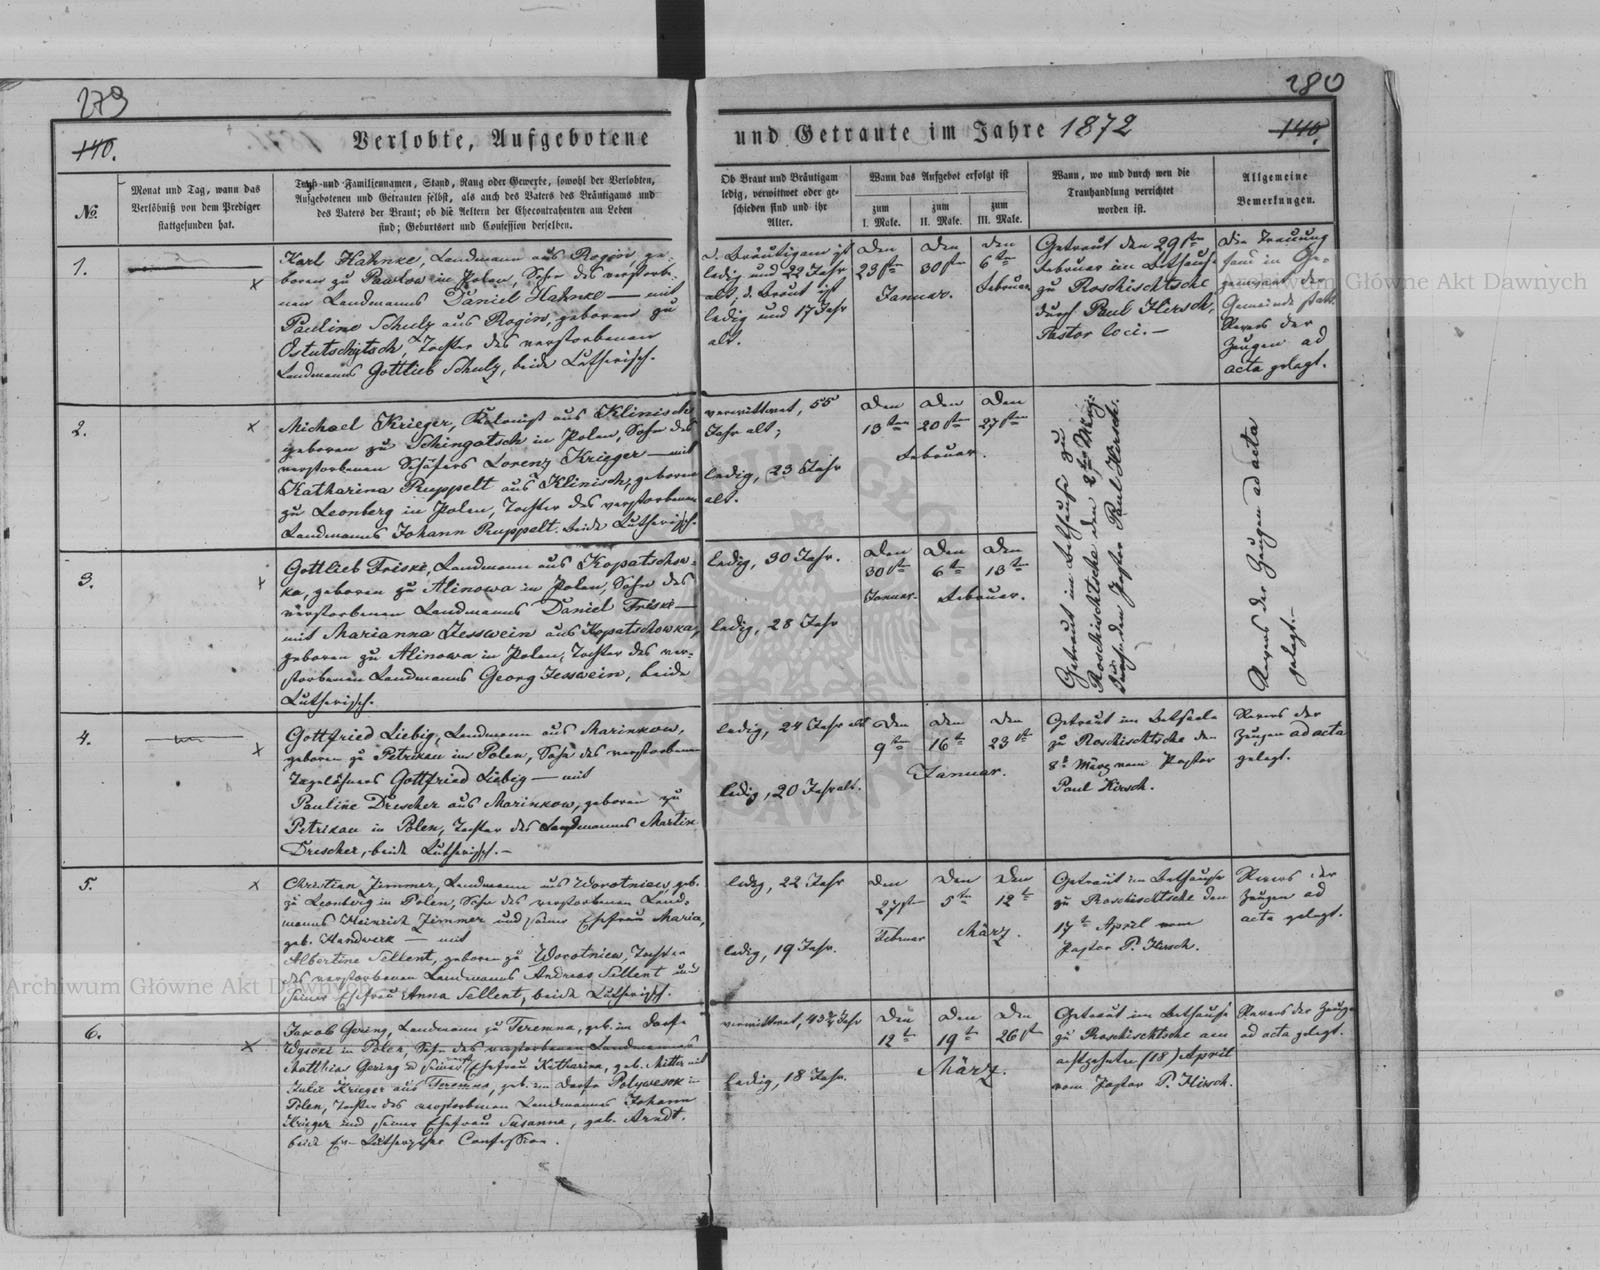 279
280
140.
Verlobte, Aufgebotene
und Getraute im Jahre 1872
140.
№.
Monat und Tag, wann das
Verlöbniß von dem Prediger
stattgefunden hat.
Tauf- und Familiennamen, Stand, Rang oder Gewerbe, sowohl der Verlobten,
Aufgebotenen und Getrauten selbst, als auch des Vaters des Bräutigams und
des Vaters der Braut; ob die Aeltern der Ehecontrahenten am Leben
sind; Geburtsort und Confession derselben.
Ob Braut und Bräutigam
ledig, verwittwet oder ge-
schieden sind und ihr
Alter.
Wann das Aufgebot erfolgt ist
zum
I. Male.
zum
II. Male.
zum
III. Male.
Wann, wo und durch wen die
Trauhandlung verrichtet
worden ist.
Allgemeine
Bemerkungen.
1.
Karl Hahnke, Landmann aus Rogin, ge-
boren zu Pawlow in Polen, Sohn des verstorbe-
nen Landmanns Daniel Hahnke — mit
Pauline Schulz aus Rogin, geboren zu
Ostutschytsch, Tochter des verstorbenen
Landmanns Gottlieb Schulz, beide Lutherisch.
d. Bräutigam ist
ledig und 22 Jahr
alt; d. Braut ist
ledig und 17 Jahr
alt.
den
23sten
den
30sten
Januar.
den
6ten
Februar
Getraut den 29sten
Februar im Bethause
zu Roschischtsche
durch Paul Hirsch,
Pastor loci. —
Die Trauung
fand in Ge-
genwart der
Gemeinde statt.
Revers der
Zeugen ad
acta gelegt.
2.
Michael Krieger, Kolonist aus Klinisch
geboren zu Schingatsch in Polen, Sohn des
verstorbenen Schäfers Lorenz Krieger — mit
Katharina Ruppelt aus Klinisch, geboren
zu Leonberg in Polen, Tochter des verstorbenen
Landmanns Johann Ruppelt. Beide Lutherisch.
verwittwet, 55
Jahr alt;
ledig, 23 Jahr
alt.
den
13ten
den
20sten
den
27sten
Februar.
Getraut im Bethause zu
Roschischtsche den
durch den Pastor Paul Hirsch.
Revers der Zeugen ad acta
gelegt. —
3.
Gottlieb Friske, Landmann aus Kopatschow-
ka, geboren zu Alinowa in Polen, Sohn des
verstorbenen Landmanns Daniel Friske —
mit Marianna Jesswein aus Kopatschowka,
geboren zu Alinowa in Polen, Tochter des ver-
storbenen Landmanns Georg Jesswein, beide
Lutherisch.
ledig, 30 Jahr.
ledig, 28 Jahr
den
30ste
Januar.
den
6te
den
13te
Februar.
4.
Gottfried Liebig, Landmann aus Marinkow,
geboren zu Petrikau in Polen, Sohn des verstorbenen
Tagelöhners Gottfried Liebig — mit
Pauline Drescher aus Marinkow, geboren zu
Petrikau in Polen, Tochter des Landmannes Martin
Drescher, beide Lutherisch. —
ledig, 24 Jahr alt
ledig, 20 Jahr alt.
den
9te
den
16te
den
23ste
Januar.
Getraut im Betsaale
zu Roschischtsche den
8t März vom Pastor
Paul Hirsch.
Revers der
Zeugen ad acta
gelegt.
5.
Christian Zimmer, Landmann aus Worotniew, geb.
zu Leonberg in Polen, Sohn des verstorbenen Land-
manns Heinrich Zimmer und seiner Ehefrau Maria,
geb. Handwerk — mit
Albertine Sellent, geboren zu Worotniew, Tochter
des verstorbenen Landmanns Andreas Sellent und
seiner Ehefrau Anna Sellent, beide Lutherisch.
ledig, 22 Jahr
ledig, 19 Jahr.
den
27ste
Februar
den
5te
den
12te
März.
Getraut im Bethause
zu Roschischtsche den
17t April vom
Pastor P. Hirsch.
Revers der
Zeugen ad
acta gelegt.
6.
Jakob Gering, Landmann zu Teremna, geb. im Dorfe
Wysoki in Polen, Sohn des verstorbenen Landmannes
Matthias Gering u seiner Ehefrau Katharina, geb. Mitter mit
Julie Krieger aus Teremna, geb. im Dorfe Polywesok in
Polen, Tochter des verstorbenen Landmannes Johann
Krieger und seiner Ehefrau Susanna, geb. Arndt.
beide Ev- Lutherischer Confession.
verwittwet, 43 Jahr
ledig, 18 Jahr.
den
12te
den
19te
den
26ste
März.
Getraut im Bethause
zu Roschischtsche am
achtzehnten (18) April
vom Pastor P. Hirsch.
Revers der Zeugen
ad acta gelegt.
Archiwum Główne Akt Dawnych
Archiwum Główne Akt Dawnych